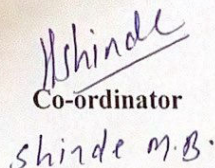 HShinde
Co-ordinator
Shinde M.B.